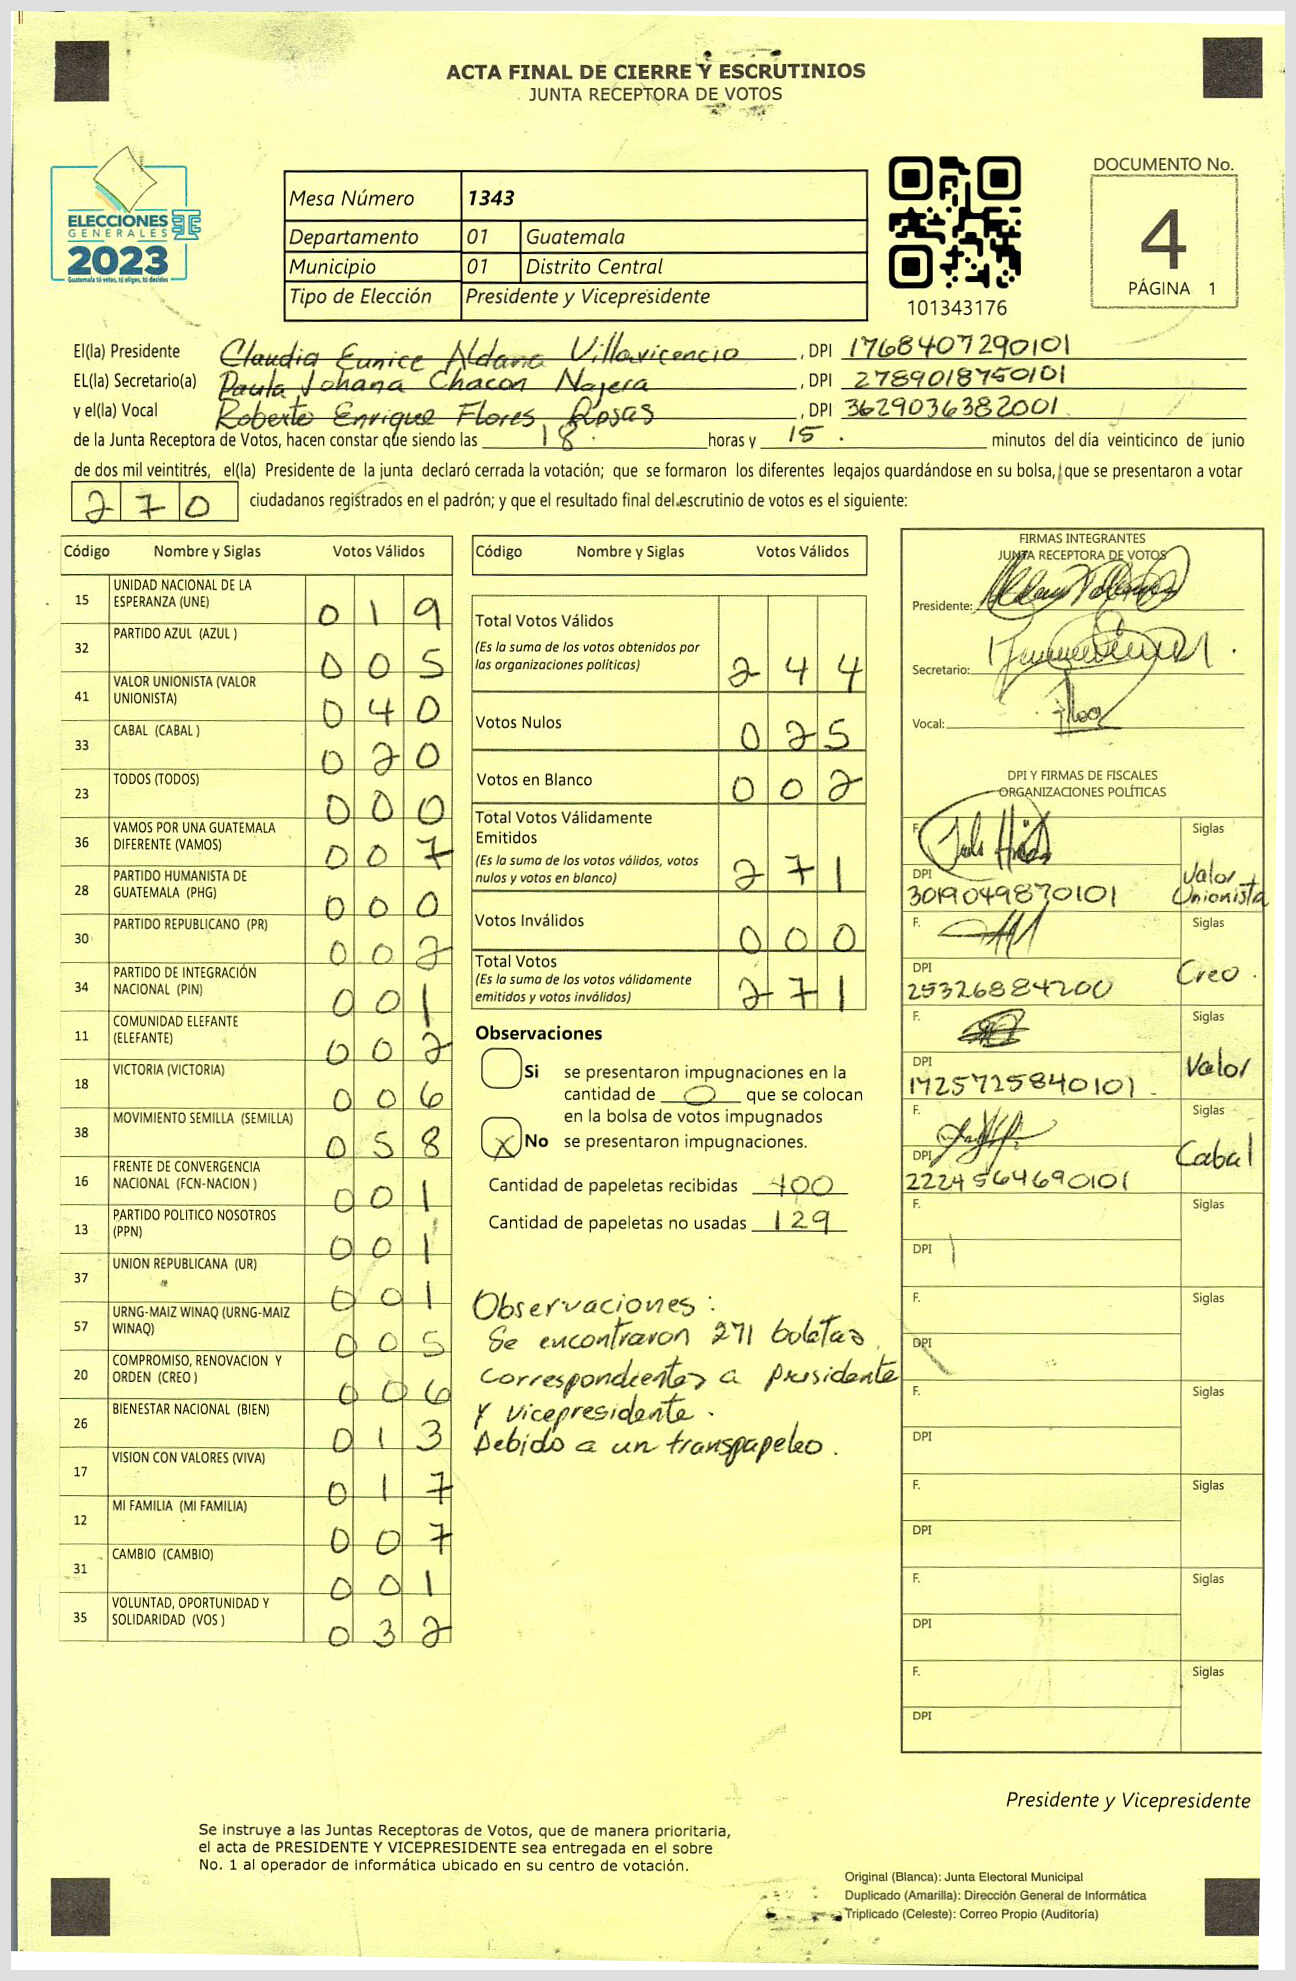 ACTA FINAL DE CIERRE Y ESCRUTINIOS
JUNTA RECEPTORA DE VOTOS
ELECCIONES
GENERALES
2023
Guatemala tú votas, tú eliges, tú decides
Mesa Número 1343
Departamento 01 Guatemala
Municipio 01 Distrito Central
Tipo de Elección Presidente y Vicepresidente
101343176
DOCUMENTO No.
4
PÁGINA 1
El(la) Presidente Claudia Eunice Aldana Villavicencio, DPI 1768407290101
EL(la) Secretario(a) Paula Johana Chacon Najera, DPI 2789018750101
y el(la) Vocal Roberto Enrique Flores Rosas, DPI 3629036382001
de la Junta Receptora de Votos, hacen constar que siendo las 18 horas y 15 minutos del día veinticinco de junio
de dos mil veintitrés, el(la) Presidente de la junta declaró cerrada la votación; que se formaron los diferentes legajos quardándose en su bolsa, que se presentaron a votar
270 ciudadanos registrados en el padrón; y que el resultado final del escrutinio de votos es el siguiente:
Código Nombre y Siglas Votos Válidos
15 UNIDAD NACIONAL DE LA
ESPERANZA (UNE) 019
32 PARTIDO AZUL (AZUL ) 005
41 VALOR UNIONISTA (VALOR
UNIONISTA) 040
33 CABAL (CABAL ) 020
23 TODOS (TODOS) 000
36 VAMOS POR UNA GUATEMALA
DIFERENTE (VAMOS) 007
28 PARTIDO HUMANISTA DE
GUATEMALA (PHG) 000
30 PARTIDO REPUBLICANO (PR) 002
34 PARTIDO DE INTEGRACIÓN
NACIONAL (PIN) 001
11 COMUNIDAD ELEFANTE
(ELEFANTE) 002
18 VICTORIA (VICTORIA) 006
38 MOVIMIENTO SEMILLA (SEMILLA) 058
16 FRENTE DE CONVERGENCIA
NACIONAL (FCN-NACION ) 001
13 PARTIDO POLITICO NOSOTROS
(PPN) 001
37 UNION REPUBLICANA (UR) 001
57 URNG-MAIZ WINAQ (URNG-MAIZ
WINAQ) 005
20 COMPROMISO, RENOVACION Y
ORDEN (CREO ) 006
26 BIENESTAR NACIONAL (BIEN) 013
17 VISION CON VALORES (VIVA) 017
12 MI FAMILIA (MI FAMILIA) 007
31 CAMBIO (CAMBIO) 001
35 VOLUNTAD, OPORTUNIDAD Y
SOLIDARIDAD (VOS ) 032
Código Nombre y Siglas Votos Válidos
Total Votos Válidos
(Es la suma de los votos obtenidos por
las organizaciones políticas) 244
Votos Nulos 025
Votos en Blanco 002
Total Votos Válidamente
Emitidos
(Es la suma de los votos válidos, votos
nulos y votos en blanco) 271
Votos Inválidos 000
Total Votos
(Es la suma de los votos válidamente
emitidos y votos inválidos) 271
Observaciones
Si se presentaron impugnaciones en la
cantidad de 0 que se colocan
en la bolsa de votos impugnados
X No se presentaron impugnaciones.
Cantidad de papeletas recibidas 400
Cantidad de papeletas no usadas 129
Observaciones:
Se encontraron 271 boletas
correspondientes a presidente
y vicepresidente.
Debido a un transpapeleo.
FIRMAS INTEGRANTES
JUNTA RECEPTORA DE VOTOS
Presidente:
Secretario:
Vocal:
DPI Y FIRMAS DE FISCALES
ORGANIZACIONES POLÍTICAS
F. Siglas
DPI 3019049870101 Valor
Unionista
F. Siglas
DPI 25326884200 Creo.
F. Siglas
DPI 1725725840101. Valor
F. Siglas
DPI 2224564690101 Cabal
F. Siglas
DPI
F. Siglas
DPI
F. Siglas
DPI
F. Siglas
DPI
F. Siglas
DPI
F. Siglas
DPI
Presidente y Vicepresidente
Se instruye a las Juntas Receptoras de Votos, que de manera prioritaria,
el acta de PRESIDENTE Y VICEPRESIDENTE sea entregada en el sobre
No. 1 al operador de informática ubicado en su centro de votación.
Original (Blanca): Junta Electoral Municipal
Duplicado (Amarilla): Dirección General de Informática
Triplicado (Celeste): Correo Propio (Auditoría)